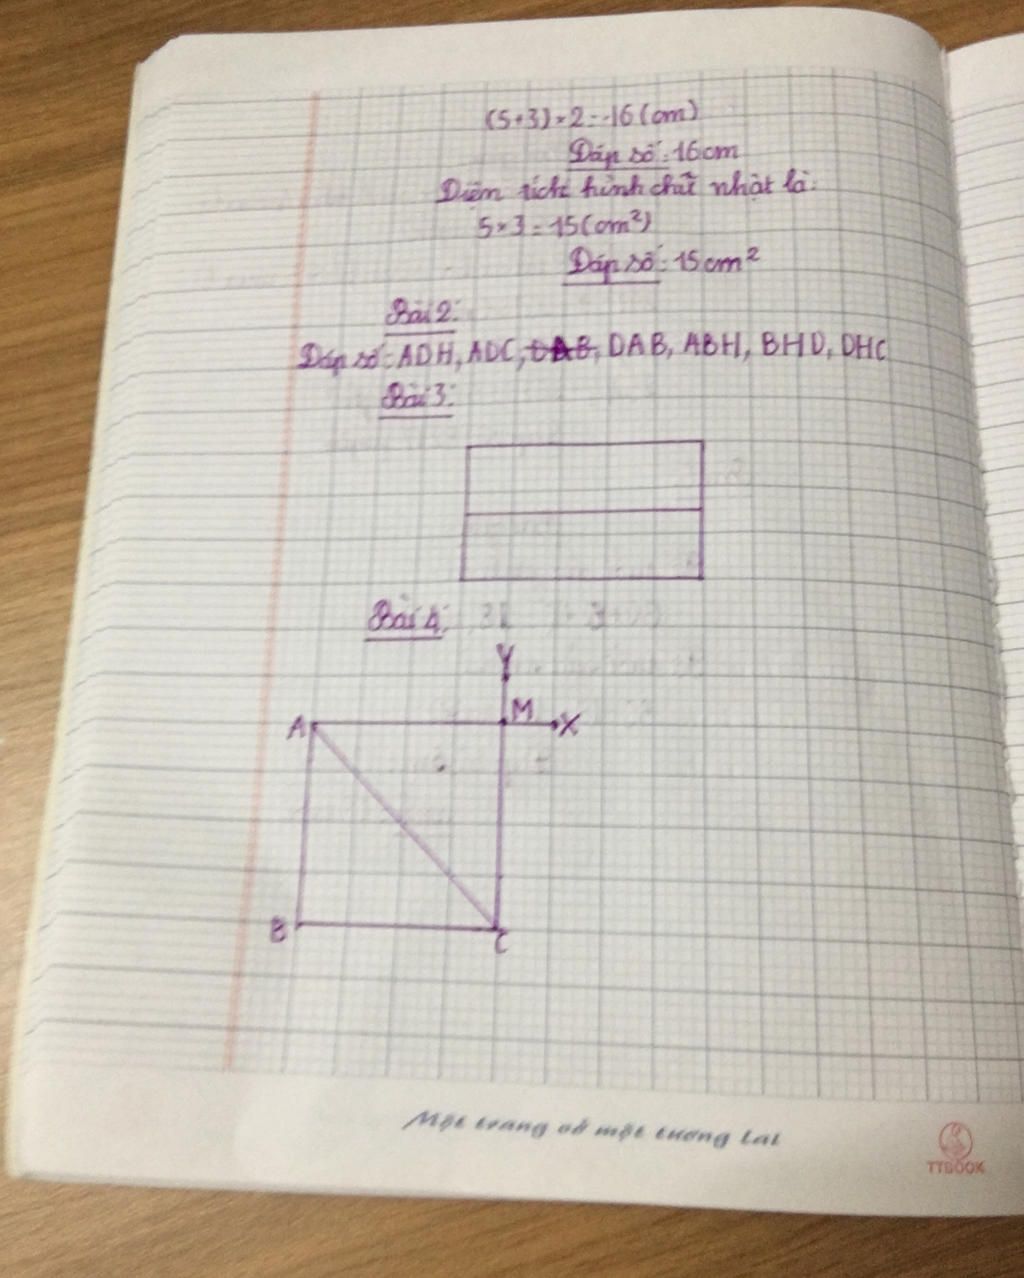 (5+3)×2=16(cm)
Đáp số: 16cm
Diện tích hình chữ nhật là:
5×3=15(cm²)
Đáp số: 15cm²
Bài 2:
Đáp số: ADH, ADC, DAB, DAB, ABH, BHD, DHC
Bài 3:
Bài 4:
Y
A
M
X
B
C
Một trang vở một tương lai
TTBOOK